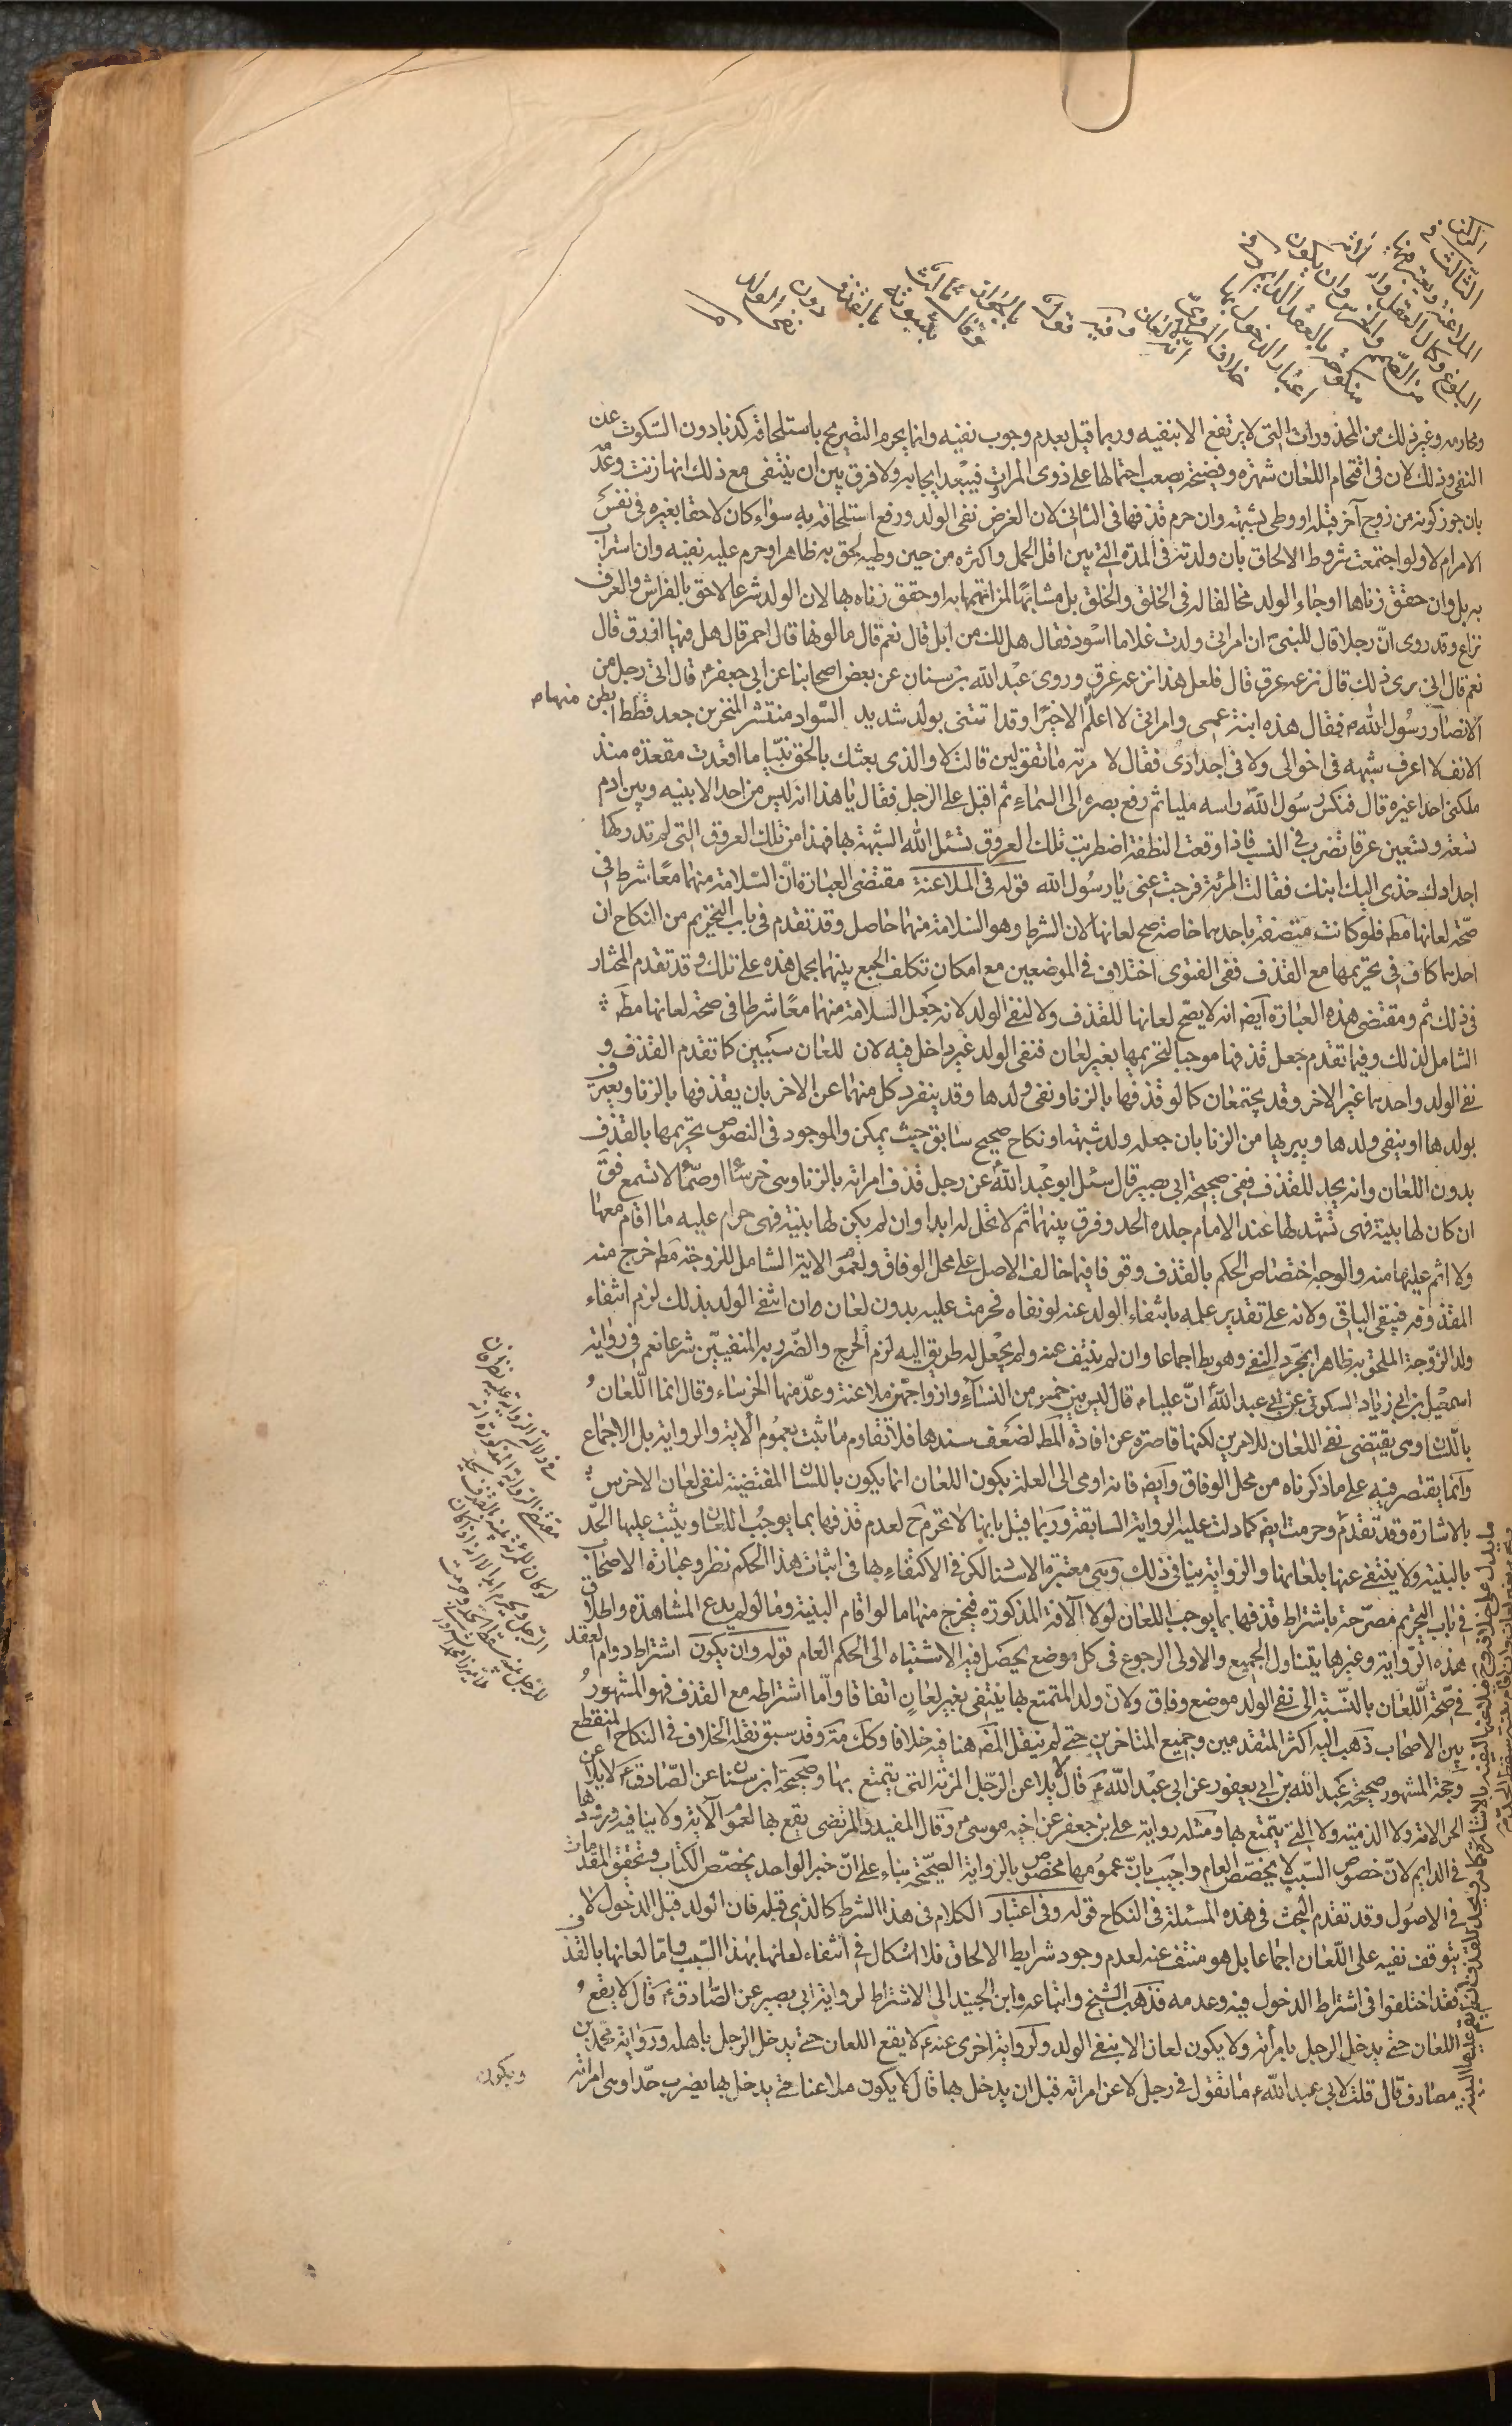 الركن الثالث في الملاعنة ويعتبر فيها البلوغ وكمال العقل والسلامة من الصمم والخرس وان يكون منكوحة بالعقد الدايم وفي اعتبار الدخول بها خلاف المروي انه لا لعان وفيه قول بالجواز وقال ثالث بثبوته بالقذف دون نفي الولد
ومحارمه وغير ذلك من المحذورات التي لا يرتفع الا بنفيه وربما قيل بعدم وجوب نفيه وانما يحرم التصريح باستلحاقه كذبا دون السكوت عن
النفي وذلك لان في اقتحام اللعان شهرة وفضيحة يصعب احتمالها على ذوي المرات فيبعد ايجابه ولا فرق بين ان ينتفي مع ذلك انها زنت وعدمه
بان جوز كونه من زوج آخر قبله او وطى بشبهة وان حرم قذفها في الثاني لان الغرض نفي الولد ورفع استلحاقه به سواء كان لاحقا بغيره في نفس
الامر ام لا ولو اجتمعت شروط الالحاق بان ولدته في المدة التي بين اقل الحمل واكثره من حين وطيه لحق به ظاهرا وحرم عليه نفيه وان استراب
به بل وان حقق زناها او جاء الولد مخالفا له في الخلق والخلق بل مشابها لمن اتهمها به او حقق زناه بها لان الولد شرعا لاحق بالفراش والعرق
نزاع وقد روى ان رجلا قال للنبي ان امراتي ولدت غلاما اسود فقال هل لك من ابل قال نعم قال ما لونها قال احمر قال هل فيها اورق قال
نعم قال انى ترى ذلك قال نزعه عرق قال فلعل هذا نزعه عرق وروى عبد الله بن سنان عن بعض اصحابنا عن ابي جعفر قال اتى رجل من
الانصار رسول الله فقال هذه ابنة عمي وامراتي لا اعلم الا خيرا وقد اتتني بولد شديد السواد منتشر المنخرين جعد قطط افطس
الانف لا اعرف شبهه في اخوالي ولا في اجدادي فقال لامرته ما تقولين قالت لا والذي بعثك بالحق نبيا ما اقعدت مقعده مني منذ
ملكني احدا غيره قال فنكس رسول الله راسه مليا ثم رفع بصره الى السماء ثم اقبل على الرجل فقال يا هذا انه ليس من احد الا بينه وبين ادم
تسعة وتسعين عرقا تضرب في النسب فاذا وقعت النطفة اضطربت تلك العروق تسئل الله الشبهة بها فهذا من تلك العروق التي لم تدركها
اجدادك خذي اليك ابنك فقالت المرئة فرجت عني يا رسول الله قوله في الملاعنة مقتضى العبارة ان السلامة منهما معا شرط في
صحة لعانها مط فلو كانت متصفة باحدهما خاصة صح لعانها لان الشرط وهو السلامة منهما حاصل وقد تقدم في باب التحريم من النكاح ان
احدهما كاف في تحريمها مع القذف ففي الفتوى اختلاف في الموضعين مع امكان تكلف الجمع بينهما بحمل هذه على تلك وقد تقدم المختار
في ذلك ثم ومقتضى هذه العبارة ايضا انه لا يصح لعانها للقذف ولا لنفي الولد لانه جعل السلامة منهما معا شرطا في صحة لعانها مط
الشامل لذلك وفيما تقدم جعل قذفها موجبا لتحريمها بغير لعان فنفي الولد غير داخل فيه لان للعان سببين كما تقدم القذف و
نفي الولد واحدهما غير الاخر وقد يجتمعان كما لو قذفها بالزنا ونفى ولدها وقد ينفرد كل منهما عن الاخر بان يقذفها بالزنا ويعترف
بولدها او ينفي ولدها ويبريها من الزنا بان جعله ولد شبهة او نكاح صحيح سابق حيث يمكن والموجود في النصوص تحريمها بالقذف
بدون اللعان وانه يحد للقذف ففي صحيحة ابي بصير قال سئل ابو عبد الله عن رجل قذف امراته بالزنا وهي خرساء او صماء لا تسمع فق
ان كان لها بينة فهي تشهد لها عند الامام جلده الحد وفرق بينهما ثم لا تحل له ابدا وان لم يكن لها بينة فهي حرام عليه ما اقام معها
ولا اثم عليها منه والوجه اختصاص الحكم بالقذف وقوفا فيما خالف الاصل على محل الوفاق ولعموم الاية الشامل للزوجة مط خرج منه
المقذوفة فيبقى الباقي ولانه على تقدير علمه بانتفاء الولد عنه لو نفاه فحرمت عليه بدون لعان وان انتفى الولد بذلك لزم انتفاء
ولد الزوجة الملحق به ظاهرا بمجرد النفي وهو بط اجماعا وان لم ينتف عنه ولم يجعل له طريق اليه لزم الحرج والضرر به المنفيين شرعا نعم في رواية
اسمعيل بن ابي زياد السكوني عن ابي عبد الله ان عليا قال ليس بين خمس من النساء وازواجهن ملاعنة وعد منها الخرساء وقال انما اللعان
باللسان وهي يقتضي نفي اللعان للامرين لكنها قاصرة عن افادة المط لضعف سندها فلا تقاوم ما ثبت بعموم الاية والرواية بل الاجماع
وانما يقتصر فيه على ما ذكرناه من محل الوفاق وايض فانه اومى الى العلة بكون اللعان انما يكون باللسان المقتضية لنفي لعان الاخرس
بالاشارة وقد تقدم وحرمت ايض كما دلت عليه الرواية السابقة وربما قيل بانها لا تحرم ح لعدم قذفها بما يوجب اللعان ويثبت عليها الحد
بالبينة ولا ينتفي عنها بلعانها والرواية ينافي ذلك وهي معتبرة الاسناد لكن في الاكتفاء بها في اثبات هذا الحكم نظر وعبارة الاصحاب
في باب التحريم مصرحة باشتراط قذفها بما يوجب اللعان لولا الآفة المذكورة فيخرج منها ما لو اقام البينة وما لو لم يدع المشاهدة واطلاق
هذه الرواية وغيرها يتناول الجميع والاولى الرجوع في كل موضع يحصل فيه الاشتباه الى الحكم العام قوله وان يكون اشتراط دوام العقد
في صحة اللعان بالنسبة الى نفي الولد موضع وفاق ولان ولد المتمتع بها ينتفي بغير لعان اتفاقا واما اشتراطه مع القذف فهو المشهور
بين الاصحاب ذهب اليه اكثر المتقدمين وجميع المتاخرين حتى لم ينقل المص هنا فيه خلافا وكانه وقد سبق نقله الخلاف في النكاح المنقطع
وحجة المشهور صحيحة عبد الله بن ابي يعفور عن ابي عبد الله قال لا يلاعن الرجل المرئة التي يتمتع بها وصحيحة ابن سنان عن الصادق لا يلاعن
الحر الامة ولا الذمية ولا التي يتمتع بها ومثله رواية علي بن جعفر عن اخيه موسى وقال المفيد والمرتضى يقع بها لعموم الآية ولا ينافيه ورودها
في الدايم لان خصوص السبب لا يخصص العام واجيب بان عمومها مخصوص بالرواية الصحيحة بناء على ان خبر الواحد يخصص الكتاب وتحقيق المقدمات
في الاصول وقد تقدم البحث في هذه المسئلة في النكاح قوله وفي اعتبار الكلام في هذا الشرط كالذي قبله فان الولد قبل الدخول لا
يتوقف نفيه على اللعان اجماعا بل هو منتف عنه لعدم وجود شرايط الالحاق فلا اشكال في انتفاء لعانها بهذا السبب واما لعانها بالقذف
فقد اختلفوا في اشتراط الدخول فيه وعدمه فذهب الشيخ واتباعه وابن الجنيد الى الاشتراط لرواية ابي بصير عن الصادق قال لا يقع
اللعان حتى يدخل الرجل بامرأته ولا يكون لعان الا بنفي الولد ولرواية اخرى عنه لا يقع اللعان حتى يدخل الرجل باهله ورواية محمد بن
مصادف قال قلت لابي عبد الله ما تقول في رجل لاعن امراته قبل ان يدخل بها قال لا يكون ملاعنا حتى يدخل بها يضرب حدا وهي امراته
ويكون